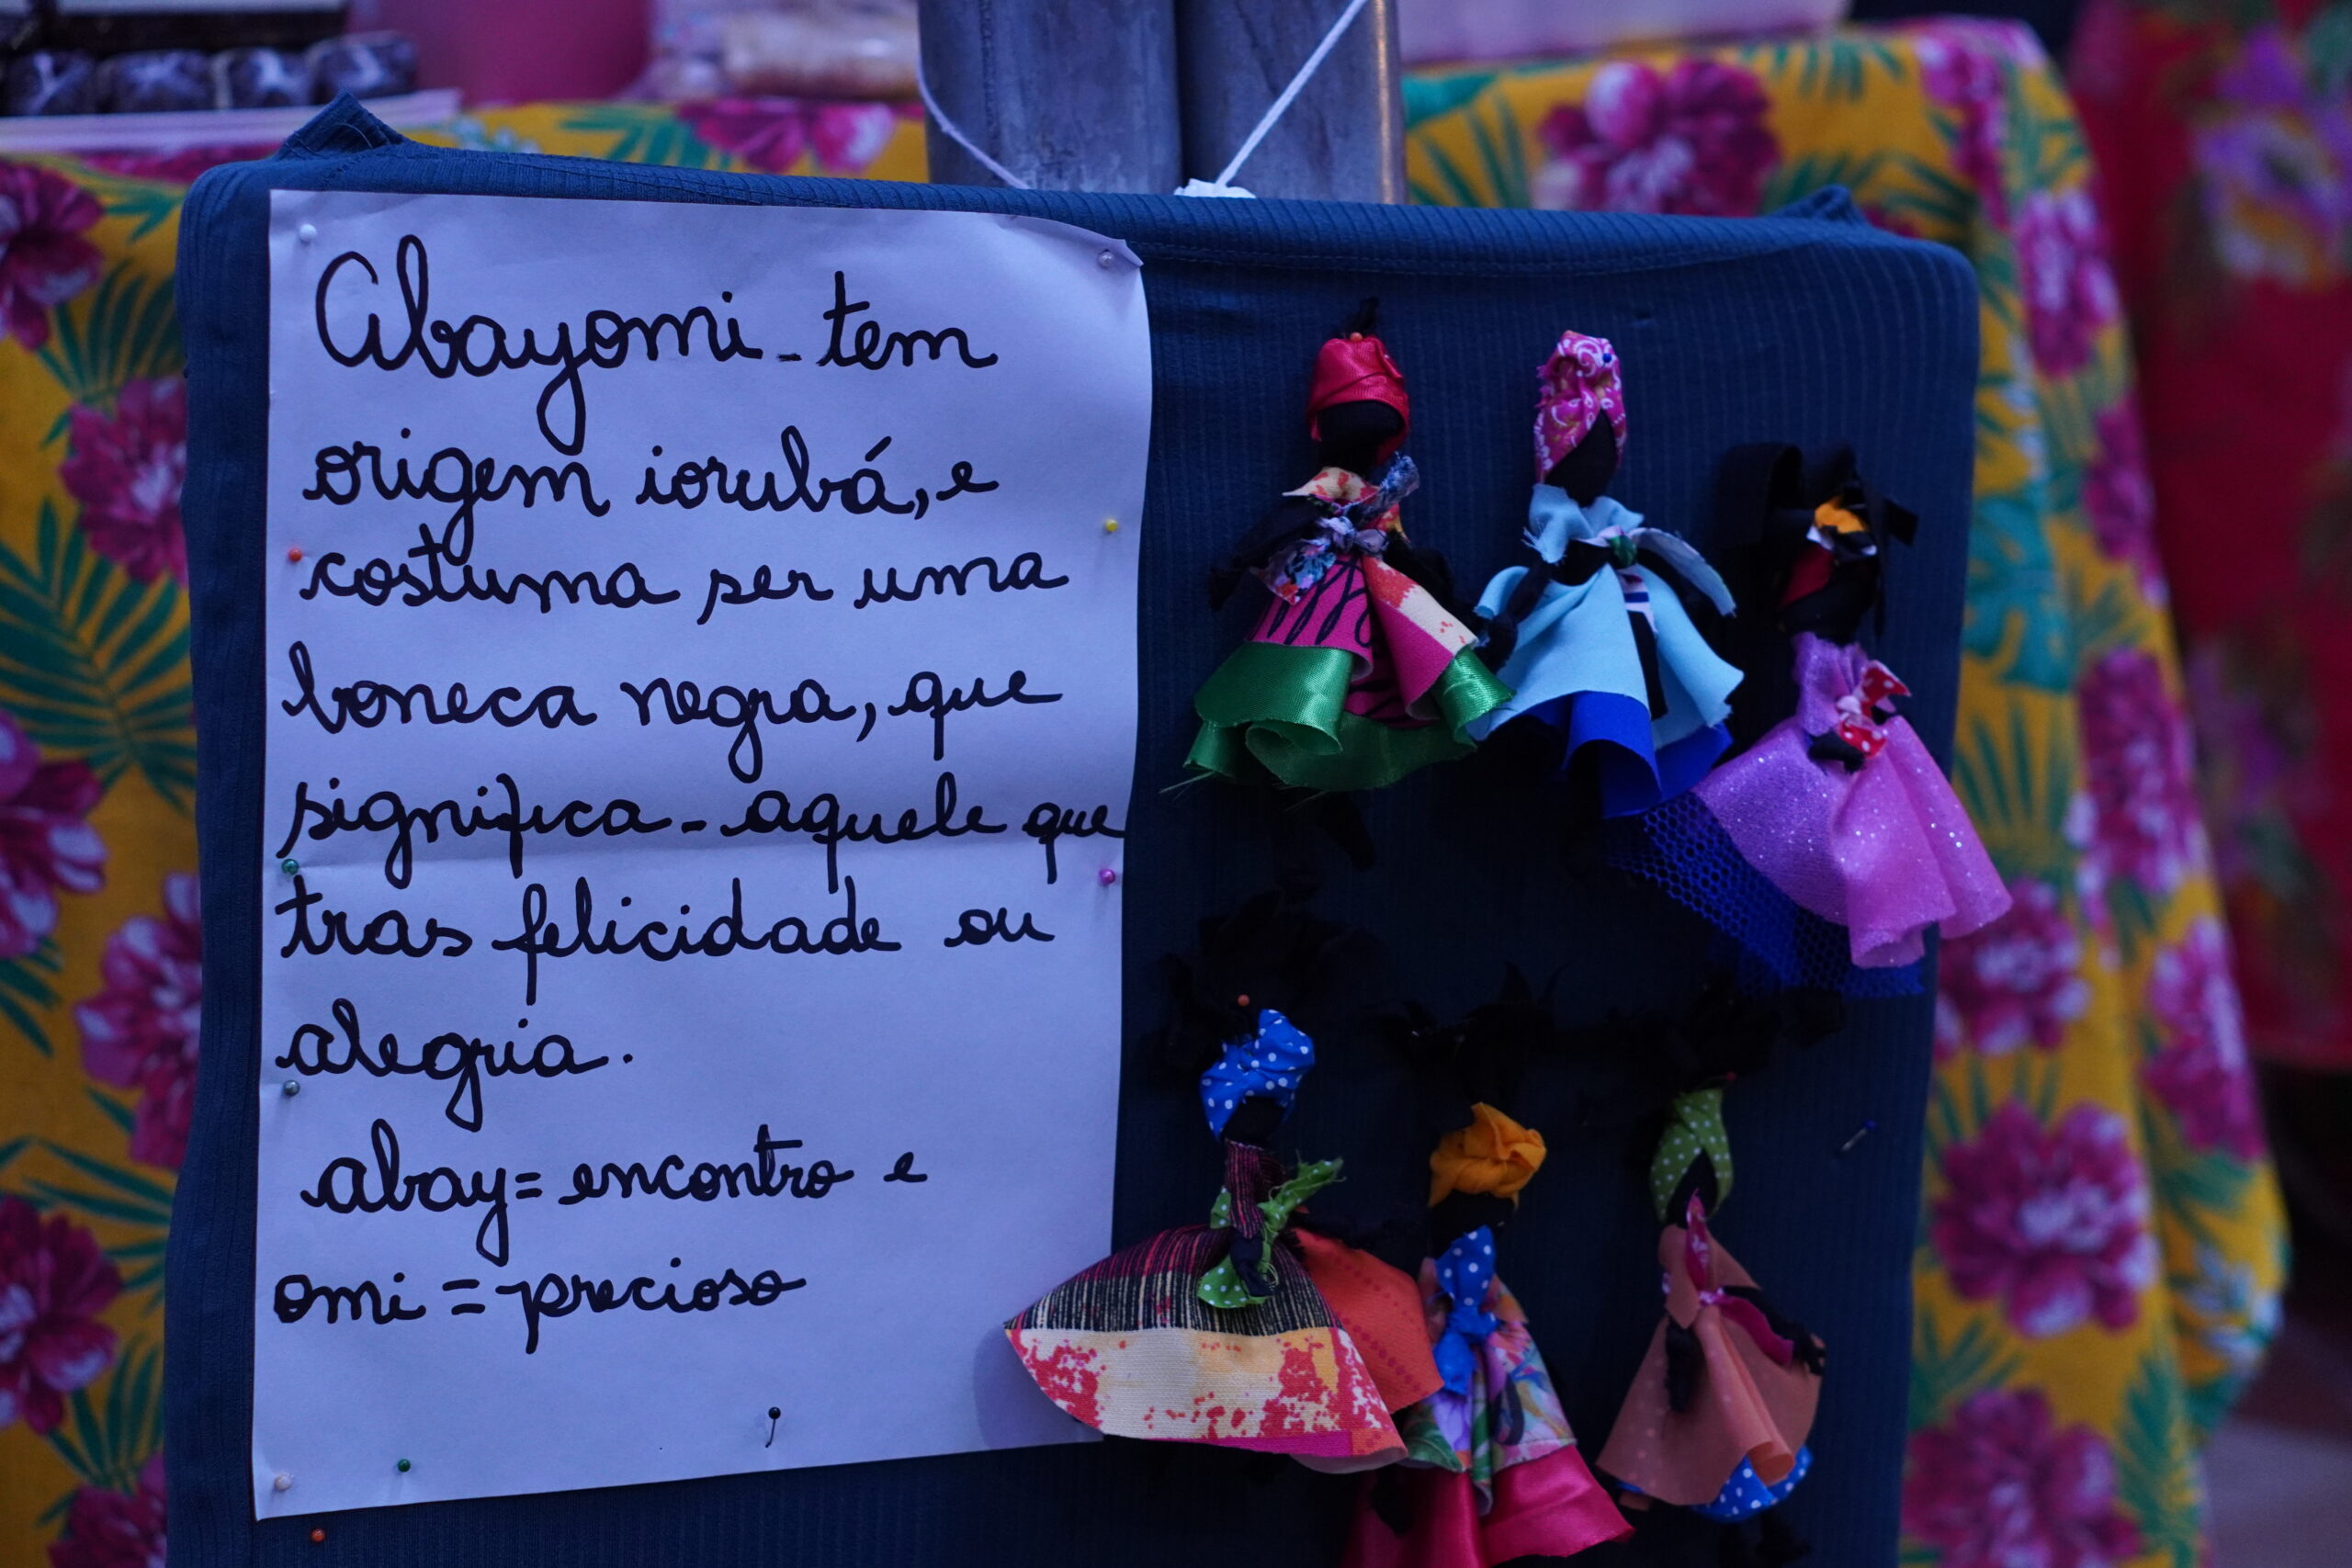 Abayomi - tem
origem iorubá, e
costuma ser uma
boneca negra, que
significa - aquele que
tras felicidade ou
alegria.
abay = encontro e
omi = precioso